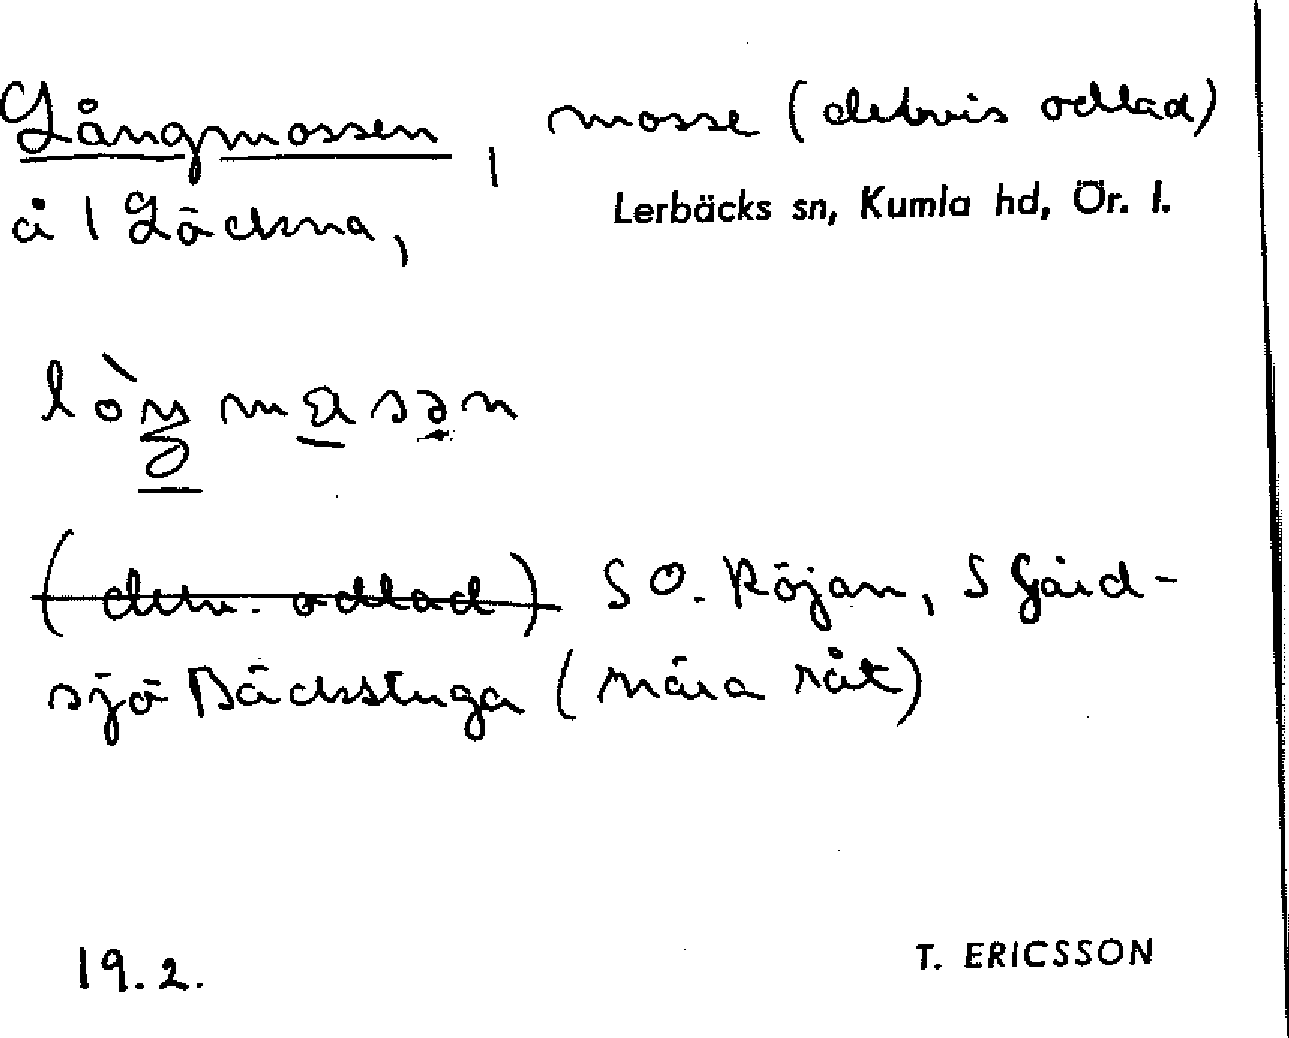 Långmossen, mosse (delvis odlad)
å 1 Läckna, Lerbäcks sn, Kumla hd, Ör. l.
(delv. odlad) S O. Röjan, S Gärd-
sjö Bäckstuga (nära råt)
19.2. T. ERICSSON